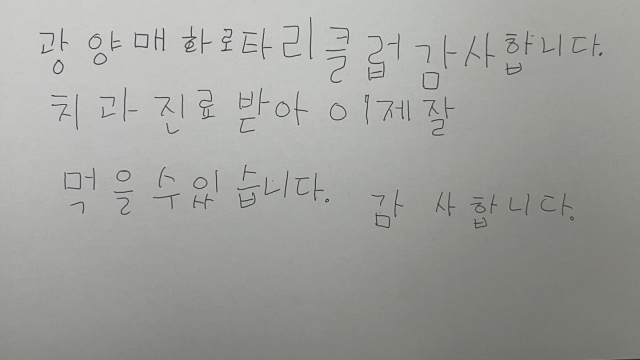 광양매화로타리클럽감사합니다.
치과진료받아 이제잘
먹을수있습니다. 감사합니다.